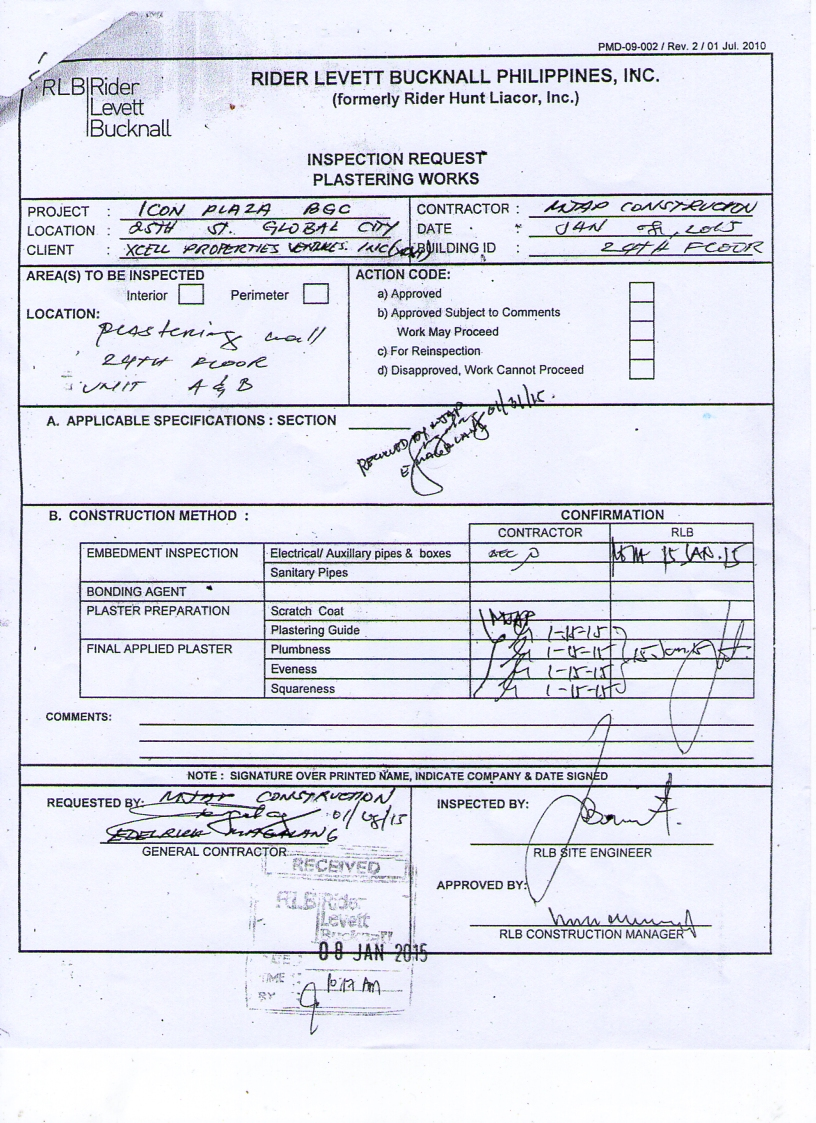 PMD-09-002 / Rev. 2 / 01 Jul. 2010
RLB Rider
Levett
Bucknall
RIDER LEVETT BUCKNALL PHILIPPINES, INC.
(formerly Rider Hunt Liacor, Inc.)
INSPECTION REQUEST
PLASTERING WORKS
PROJECT : ICON PLAZA BGC
CONTRACTOR : MJAP CONSTRUCTION
LOCATION : 25TH ST. GLOBAL CITY
DATE : JAN 08, 2015
CLIENT : XCELL PROPERTIES VENTURES INC
BUILDING ID : 29TH FLOOR
AREA(S) TO BE INSPECTED
Interior Perimeter
LOCATION:
Plastering wall
29TH FLOOR
UNIT A & B
ACTION CODE:
a) Approved
b) Approved Subject to Comments
Work May Proceed
c) For Reinspection
d) Disapproved, Work Cannot Proceed
A. APPLICABLE SPECIFICATIONS : SECTION
RECEIVED BY MJAP
E. MAGALANG 01/21/15.
B. CONSTRUCTION METHOD :
CONFIRMATION
CONTRACTOR RLB
EMBEDMENT INSPECTION Electrical/ Auxillary pipes & boxes 15 JAN. 15
Sanitary Pipes
BONDING AGENT
PLASTER PREPARATION Scratch Coat MJAP
Plastering Guide 1-15-15
FINAL APPLIED PLASTER Plumbness 1-15-15 15 Jan 15
Eveness 1-15-15
Squareness 1-15-15
COMMENTS:
NOTE : SIGNATURE OVER PRINTED NAME, INDICATE COMPANY & DATE SIGNED
REQUESTED BY: MJAP CONSTRUCTION
01/08/15
EDELRICK MAGALANG
GENERAL CONTRACTOR
INSPECTED BY:
RLB SITE ENGINEER
APPROVED BY:
RLB CONSTRUCTION MANAGER
RECEIVED
RLB Rider
Levett
Bucknall
DATE 08 JAN 2015
TIME : 10:17 AM
BY :